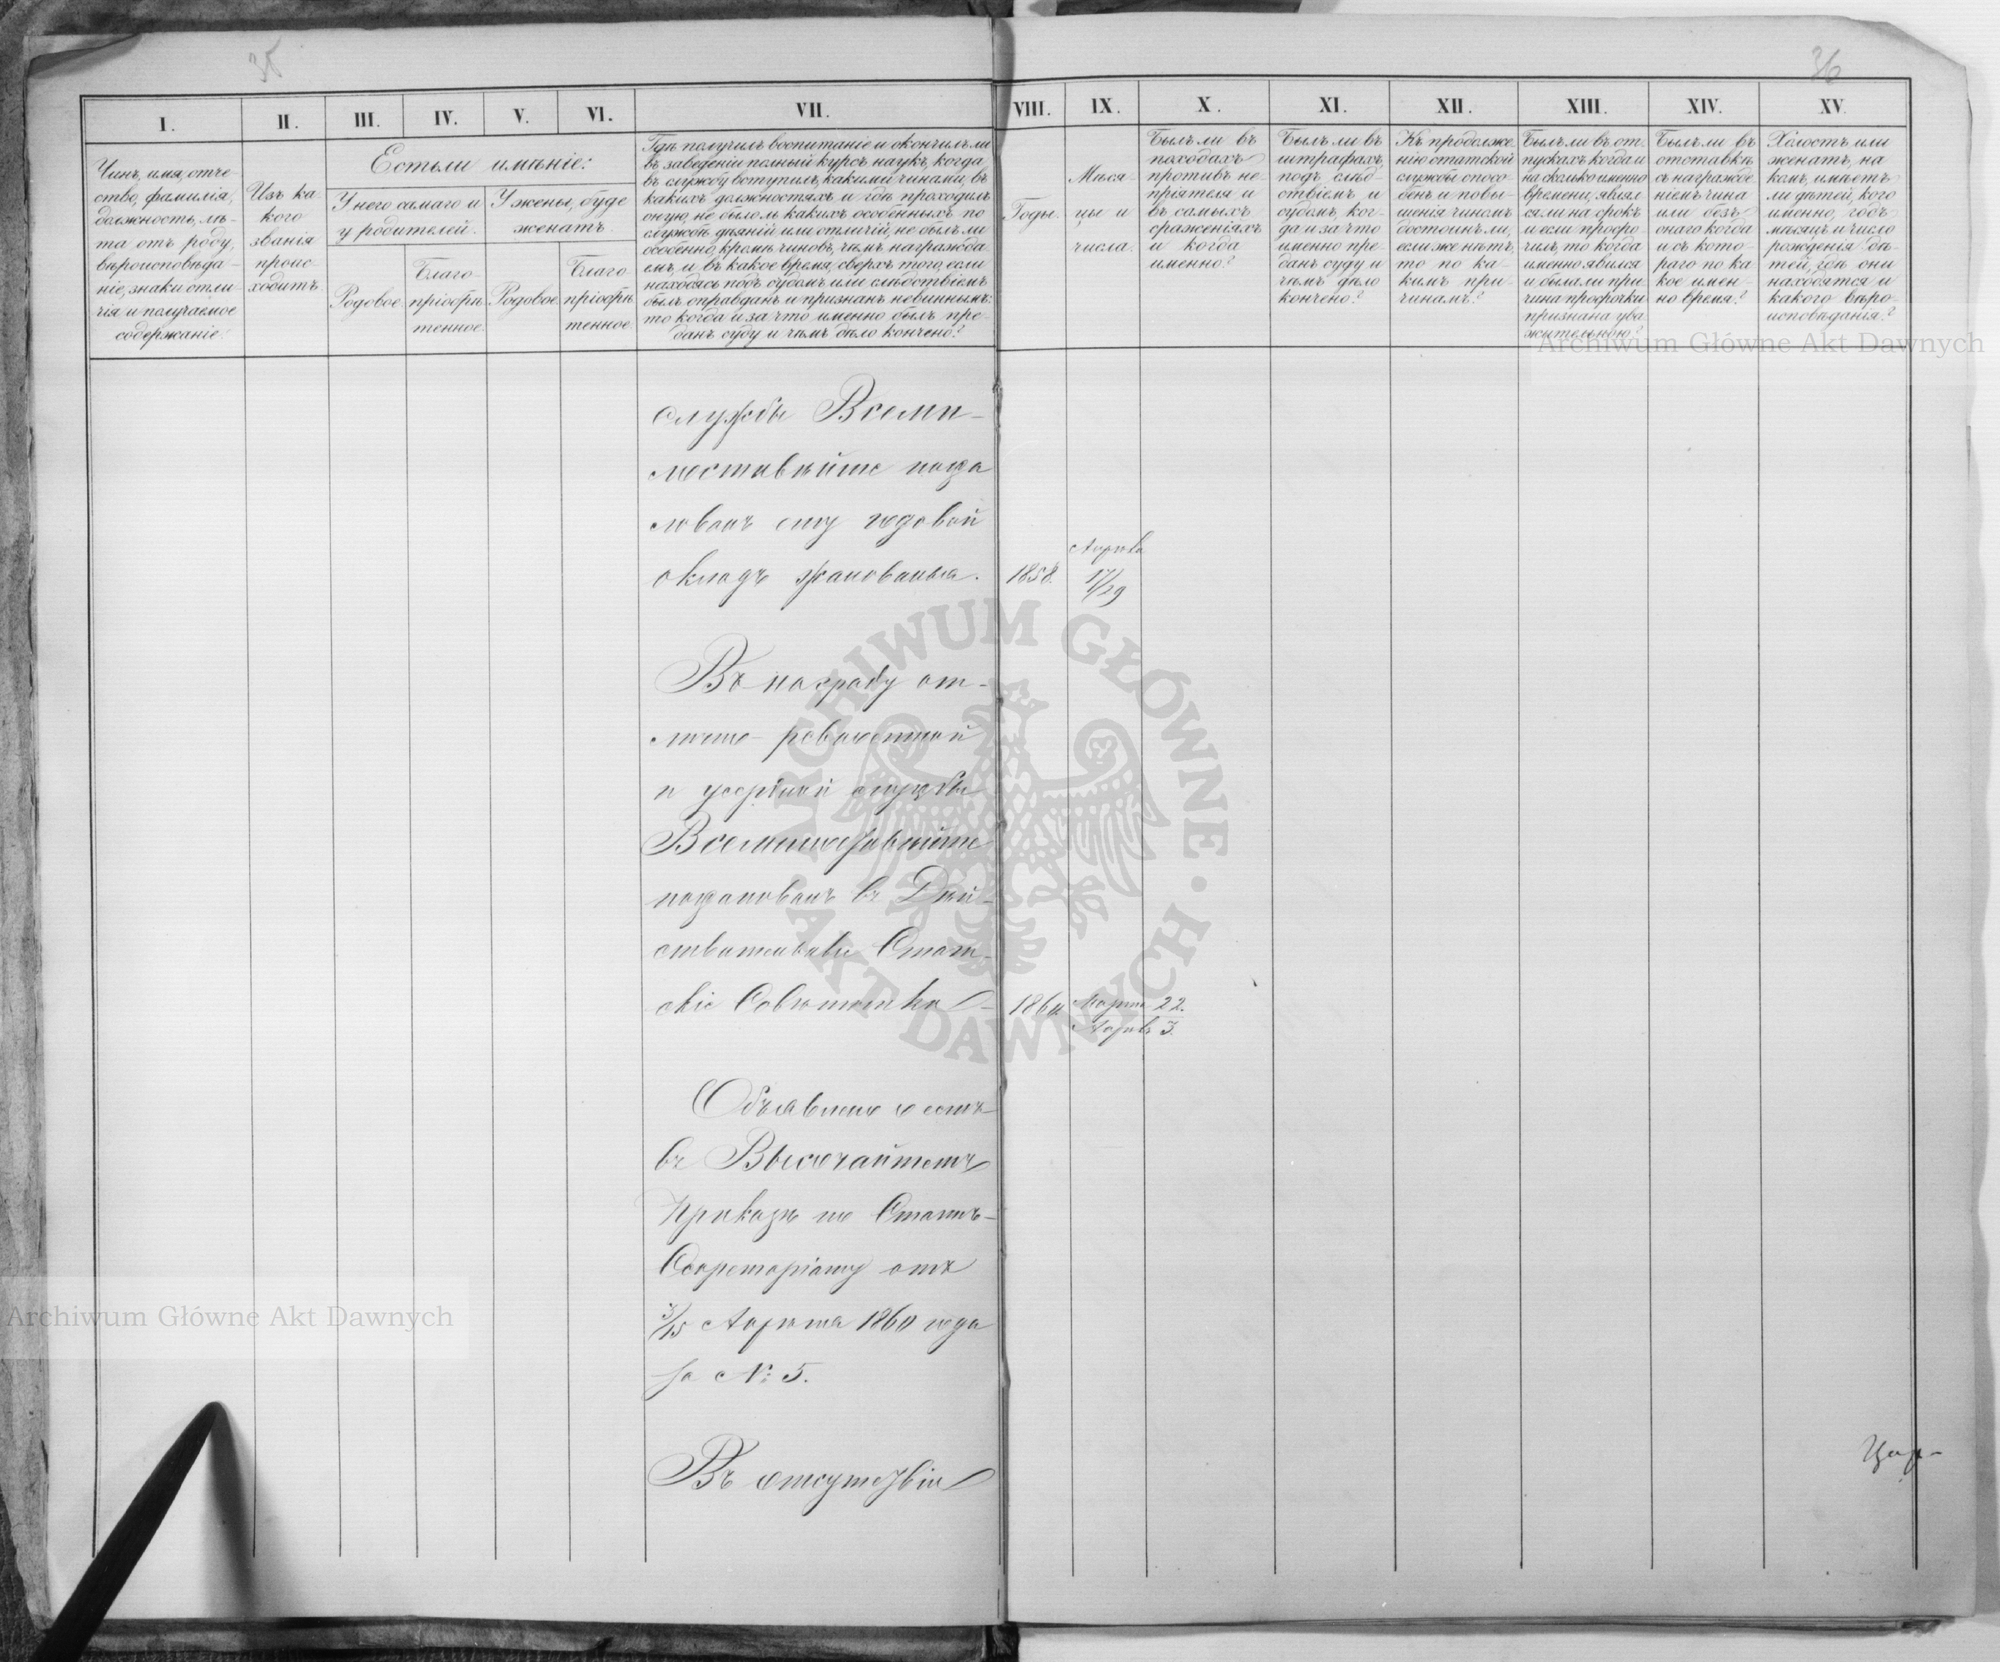 35
36
I.
II.
III.
IV.
V.
VI.
VII.
VIII.
IX.
X.
XI.
XII.
XIII.
XIV.
XV.
Чинъ, имя, отче-
ство, фамилія,
должность, лѣ-
та отъ роду,
вѣроисповѣда-
ніе, знаки отли-
чія и получаемое
содержаніе.
Изъ ка-
кого
званія
проис-
ходитъ
Естьли имѣніе:
У него самаго и
у родителей.
У жены, буде
женатъ.
Родовое.
Благо-
пріобрѣ-
тенное.
Родовое.
Благо-
пріобрѣ-
тенное.
Гдѣ получилъ воспитаніе и окончилъ ли
въ заведеніи полный курсъ наукъ, когда
въ службу вступилъ, какими чинами, въ
какихъ должностяхъ и гдѣ проходилъ
оную, не было ль какихъ особенныхъ по
службѣ дѣяній или отличій, не былъ ли
особенно, кромѣ чиновъ, чѣмъ награжда-
емъ, и въ какое время, сверхъ того, если
находясь подъ судомъ или слѣдствіемъ
былъ оправданъ и признанъ невиннымъ:
то когда и за что именно былъ пре-
данъ суду и чѣмъ дѣло кончено?
Годы.
Мѣся-
цы и
числа.
Былъ ли въ
походахъ
противъ не-
пріятеля и
въ самыхъ
сраженіяхъ
и когда
именно?
Былъ ли въ
штрафахъ,
подъ слѣд-
ствіемъ и
судомъ, ког-
да и за что
именно пре-
данъ суду и
чѣмъ дѣло
кончено?
Къ продолже-
нію статской
службы спосо-
бенъ и повы-
шенія чиномъ
достоинъ ли,
если же нѣтъ,
то по ка-
кимъ при-
чинамъ?
Былъ ли въ от-
пускахъ, когда и
на сколько именно
времени, являл-
ся ли на срокъ
и если просро-
чилъ, то когда
именно явился
и была ли при-
чина просрочки
признана ува-
жительною?
Былъ ли въ
отставкѣ
съ награжде-
ніемъ чина
или безъ
онаго когда
и съ кото-
раго по ка-
кое имен-
но время?
Холостъ или
женатъ, на
комъ, имѣетъ
ли дѣтей, кого
именно, годъ
мѣсяцъ и число
рожденія дѣ-
тей, гдѣ они
находятся и
какого вѣро-
исповѣданія?
службы Всеми-
лостивѣйше пожа
лованъ ему годовой
окладъ жалованья.
1858.
Апрѣля
17/29
Въ награду от-
лично-ревностной
и усердной службы
Всемилостивѣйше
пожалованъ въ Дѣй-
ствительные Стат-
скіе Совѣтники
1860
Марта 22.
Апрѣль 3.
Объявлено о семъ
въ Высочайшемъ
Приказѣ по Статсъ-
Секретаріату отъ
3/15 Апрѣля 1860 года
за №: 5.
Въ отсутствіи
Archiwum Główne Akt Dawnych
Archiwum Główne Akt Dawnych
ARCHIWUM GŁÓWNE · AKT DAWNYCH ·